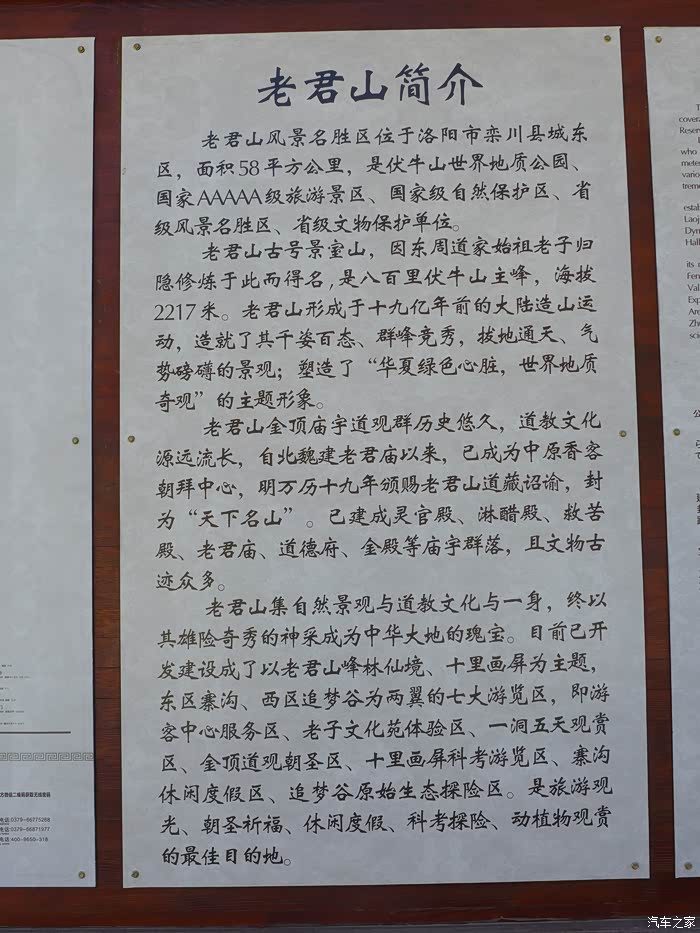 老君山简介
老君山风景名胜区位于洛阳市栾川县城东
区，面积58平方公里，是伏牛山世界地质公园、
国家AAAAA级旅游景区、国家级自然保护区、省
级风景名胜区、省级文物保护单位。
老君山古号景室山，因东周道家始祖老子归
隐修炼于此而得名，是八百里伏牛山主峰，海拔
2217米。老君山形成于十九亿年前的大陆造山运
动，造就了其千姿百态、群峰竞秀，拔地通天、气
势磅礴的景观；塑造了“华夏绿色心脏，世界地质
奇观”的主题形象。
老君山金顶庙宇道观群历史悠久，道教文化
源远流长，自北魏建老君庙以来，已成为中原香客
朝拜中心，明万历十九年颁赐老君山道藏诏谕，封
为“天下名山”。已建成灵官殿、淋醋殿、救苦
殿、老君庙、道德府、金殿等庙宇群落，且文物古
迹众多。
老君山集自然景观与道教文化与一身，终以
其雄险奇秀的神采成为中华大地的瑰宝。目前已开
发建设成了以老君山峰林仙境、十里画屏为主题，
东区寨沟、西区追梦谷为两翼的七大游览区，即游
客中心服务区、老子文化苑体验区、一洞五天观赏
区、金顶道观朝圣区、十里画屏科考游览区、寨沟
休闲度假区、追梦谷原始生态探险区。是旅游观
光、朝圣祈福、休闲度假、科考探险、动植物观赏
的最佳目的地。
汽车之家